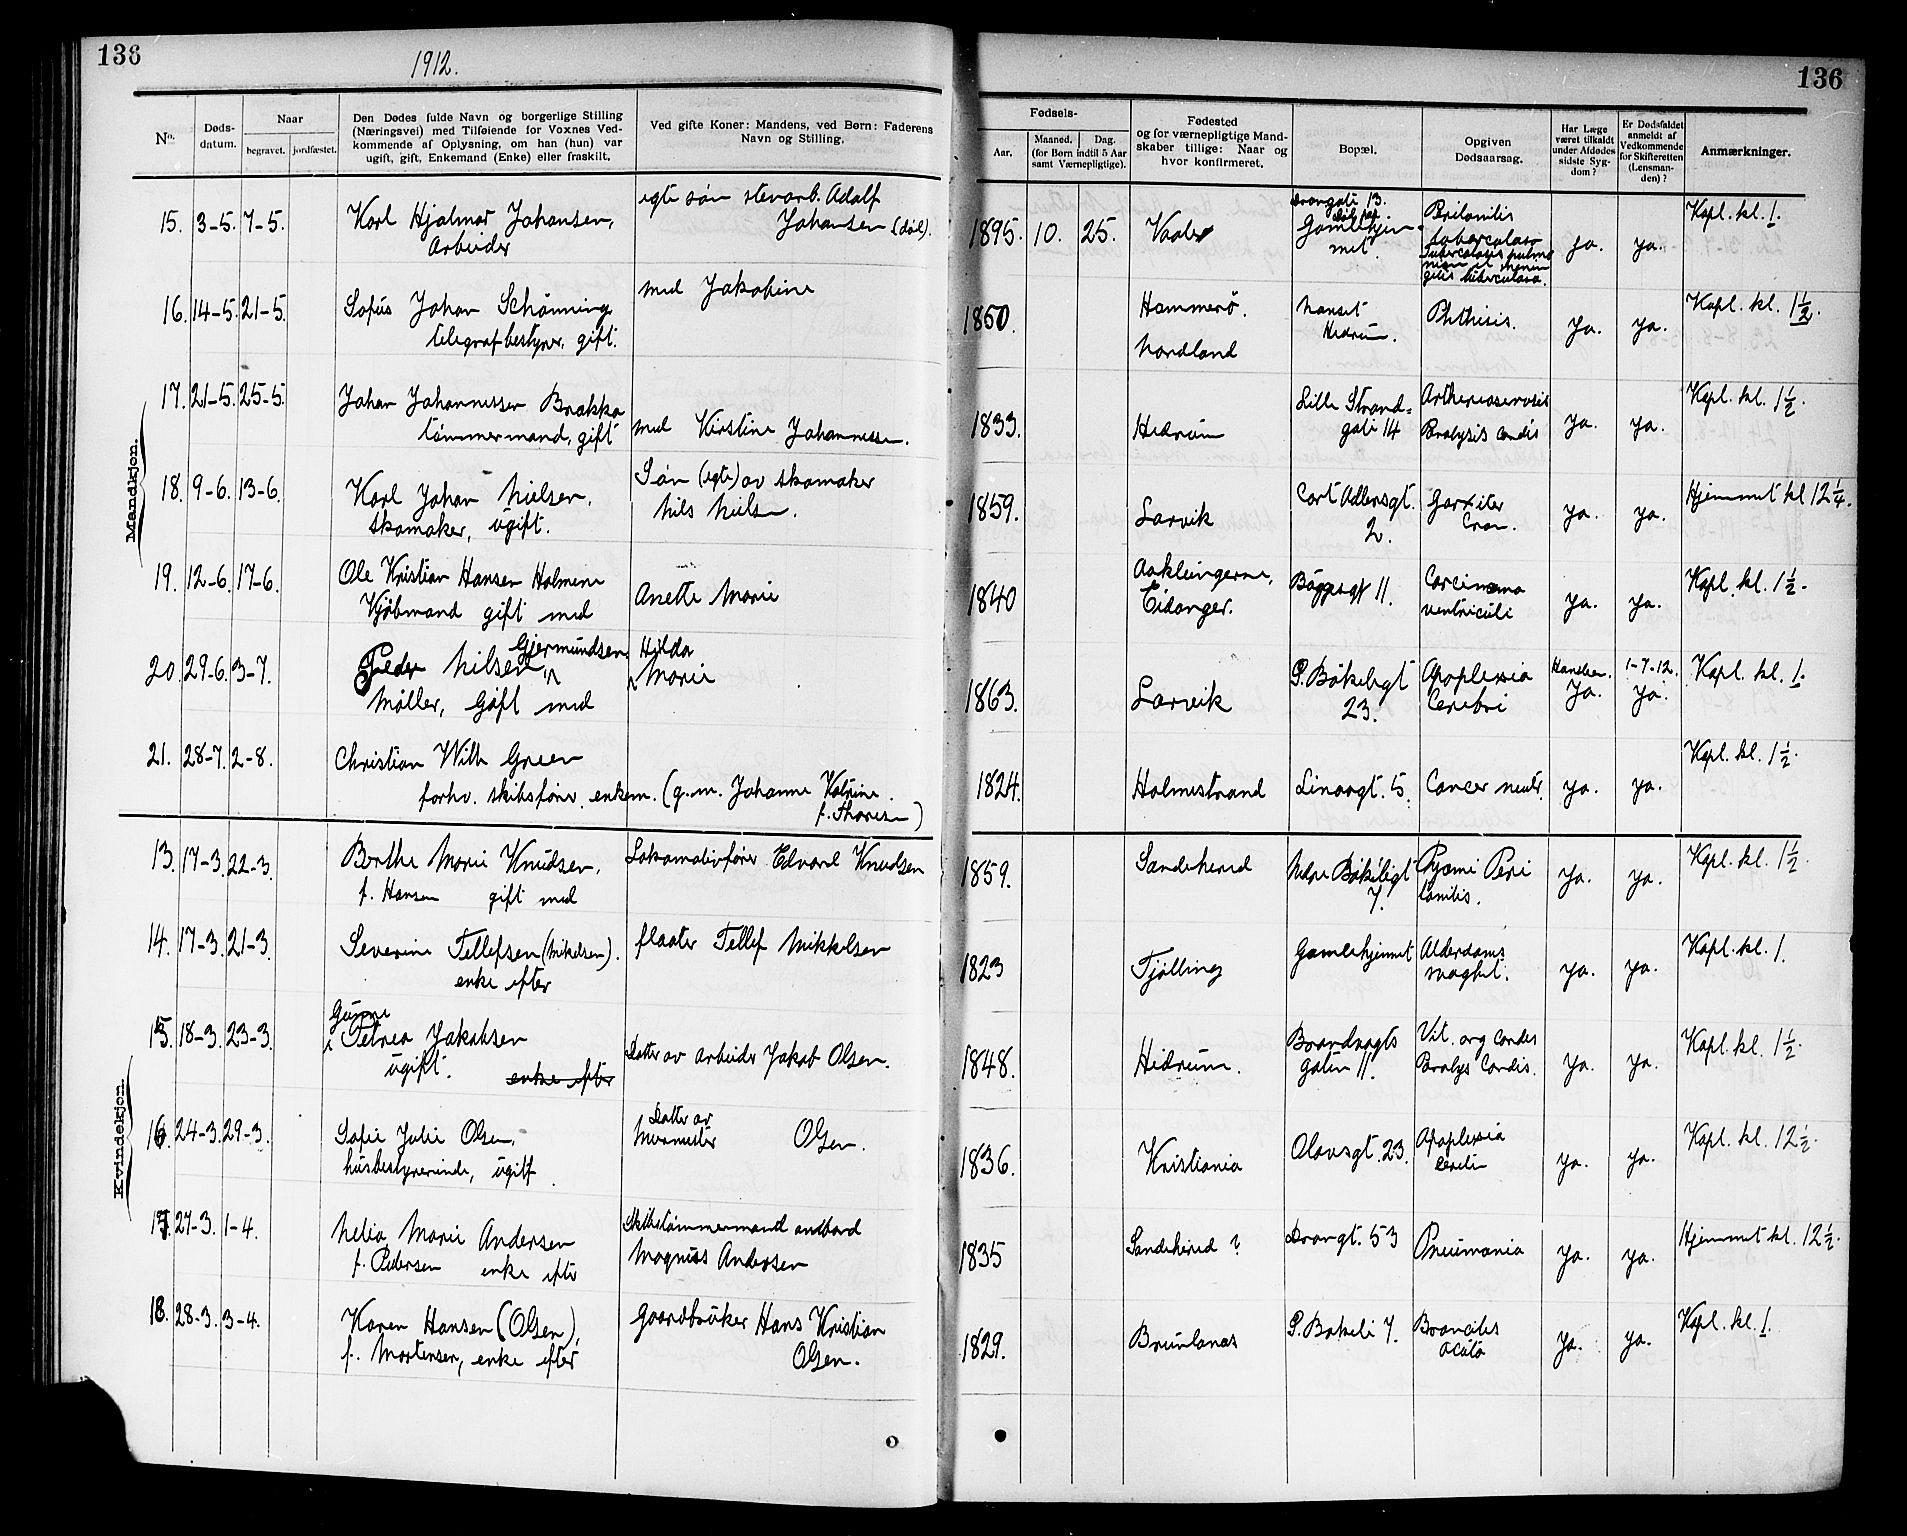 136
1912.
136
No.
Døds-
datum.
Naar
begravet.
jordfæstet.
Den Dødes fulde Navn og borgerlige Stilling
(Næringsvei) med Tilføiende for Voxnes Ved-
kommende af Oplysning, om han (hun) var
ugift, gift, Enkemand (Enke) eller fraskilt.
Ved gifte Koner: Mandens, ved Børn: Faderens
Navn og Stilling.
Fødsels-
Aar.
Maaned.
Dag.
(for Børn indtil 5 Aar
samt Værnepligtige).
Fødested
og for værnepligtige Mand-
skaber tillige: Naar og
hvor konfirmeret.
Bopæl.
Opgiven
Dødsaarsag.
Har Læge
været tilkaldt
under Afdødes
sidste Syg-
dom?
Er Dødsfaldet
anmeldt af
Vedkommende
for Skifteretten
(Lensman-
den)?
Anmærkninger.
Mandkjøn.
15. 3-5. 7-5.
Karl Hjalmar Johansen,
Arbeider
egte søn stenarb. Adolf
Johansen (død).
1895. 10. 25.
Vaaler
Gamlehjem-
met.
Peritonitis
tuberculosa
ja. ja.
Kapl. kl. 1.
16. 14-5. 21-5.
Sofus Johan Schønning
telegrafbestyrer, gift.
med Jakobine
1850.
Hammerø.
Nordland
Nanset
Hedrum.
Phthisis.
ja. ja.
Kapl. kl. 1½.
17. 21-5. 25-5.
Johan Johannessen Brakka
tømmermand, gift
med Kirstine Johannessen.
1833.
Hedrum
Lille Strand-
gate 14
Paralysis Cordis
ja. ja.
Kapl. kl. 1½.
18. 9-6. 13-6.
Karl Johan Nielsen,
skomaker, ugift.
Søn (egte) av skomaker
Nils Nielsen.
1859.
Larvik
Cort Adlersgt.
2.
ja. ja.
Hjemmet kl 12¼.
19. 12-6. 17-6.
Ole Kristian Hansen Holmene
Kjøbmand gift med
Anette Marie
1840
Aaklungerne,
Eidanger.
Bøggegt 11.
Carcinoma
ventriculi
ja. ja.
Kapl. kl. 1½.
20. 29-6. 3-7.
Gjermundsen
Peder Nilsen
Møller, Gift med
Hilda
Marie
1863.
Larvik
S. Bøkeligt
23.
Apoplexia
Cerebri
ja.
1-7-12.
ja.
Kapl. kl. 1.
21. 28-7. 2-8.
Christian Wilh Green
forhv. skibsfører, enkem. (g. m. Johanne Katrine
f. Thoresen)
1824.
Holmestrand
Linaagt. 5.
Cancer ventr.
ja. ja.
Kapl. kl. 1½.
Kvindekjøn.
13. 17-3. 22-3.
Berthe Marie Knudsen,
f. Hansen gift med
Lokomotivfører Edvard Knudsen
1859.
Sandeherred
Nedre Bøkeligt
7.
Pyæmi Peri
tonitis.
ja. ja.
Kapl. kl. 1½.
14. 17-3. 21-3.
Severine Tellefsen (Mikelsen).
enke efter
flaater Tellef Mikkelsen
1823
Tjølling
Gamlehjemmet
Alderdoms
svaghet.
ja. ja.
Kapl. kl. 1.
15. 18-3. 23-3.
Gunne
Petrea Jakobsen
ugift. enke efter
Datter av arbeider Jakob Olsen.
1848.
Hedrum.
Brandvagts
gaten 11.
Vit. org Cordis
Paralys Cordis.
ja. ja.
Kapl. kl. 1½.
16. 24-3. 29-3.
Sofie Julie Olsen,
husbestyrerinde, ugift.
Datter av
Murmester Olsen.
1836.
Kristiania
Olavsgt. 23.
Apoplexia
Cerebri
ja. ja.
Kapl. kl. 12½.
17. 27-3. 1-4.
Nelia Marie Andersen
f. Pedersen enke efter
Skibstømmermand ombord
Magnus Andersen
1835
Sandeherred ?
Drangt. 53
Pneumonia
ja. ja.
Hjemmet kl. 12½.
18. 28-3. 3-4.
Karen Hansen (Olsen),
f. Mortensen, enke efter
Gaardbruker Hans Kristian
Olsen.
1829.
Brunlanes
S. Bøkeli 7.
Bronchitis
acuta
ja. ja.
Kapl. kl. 1.